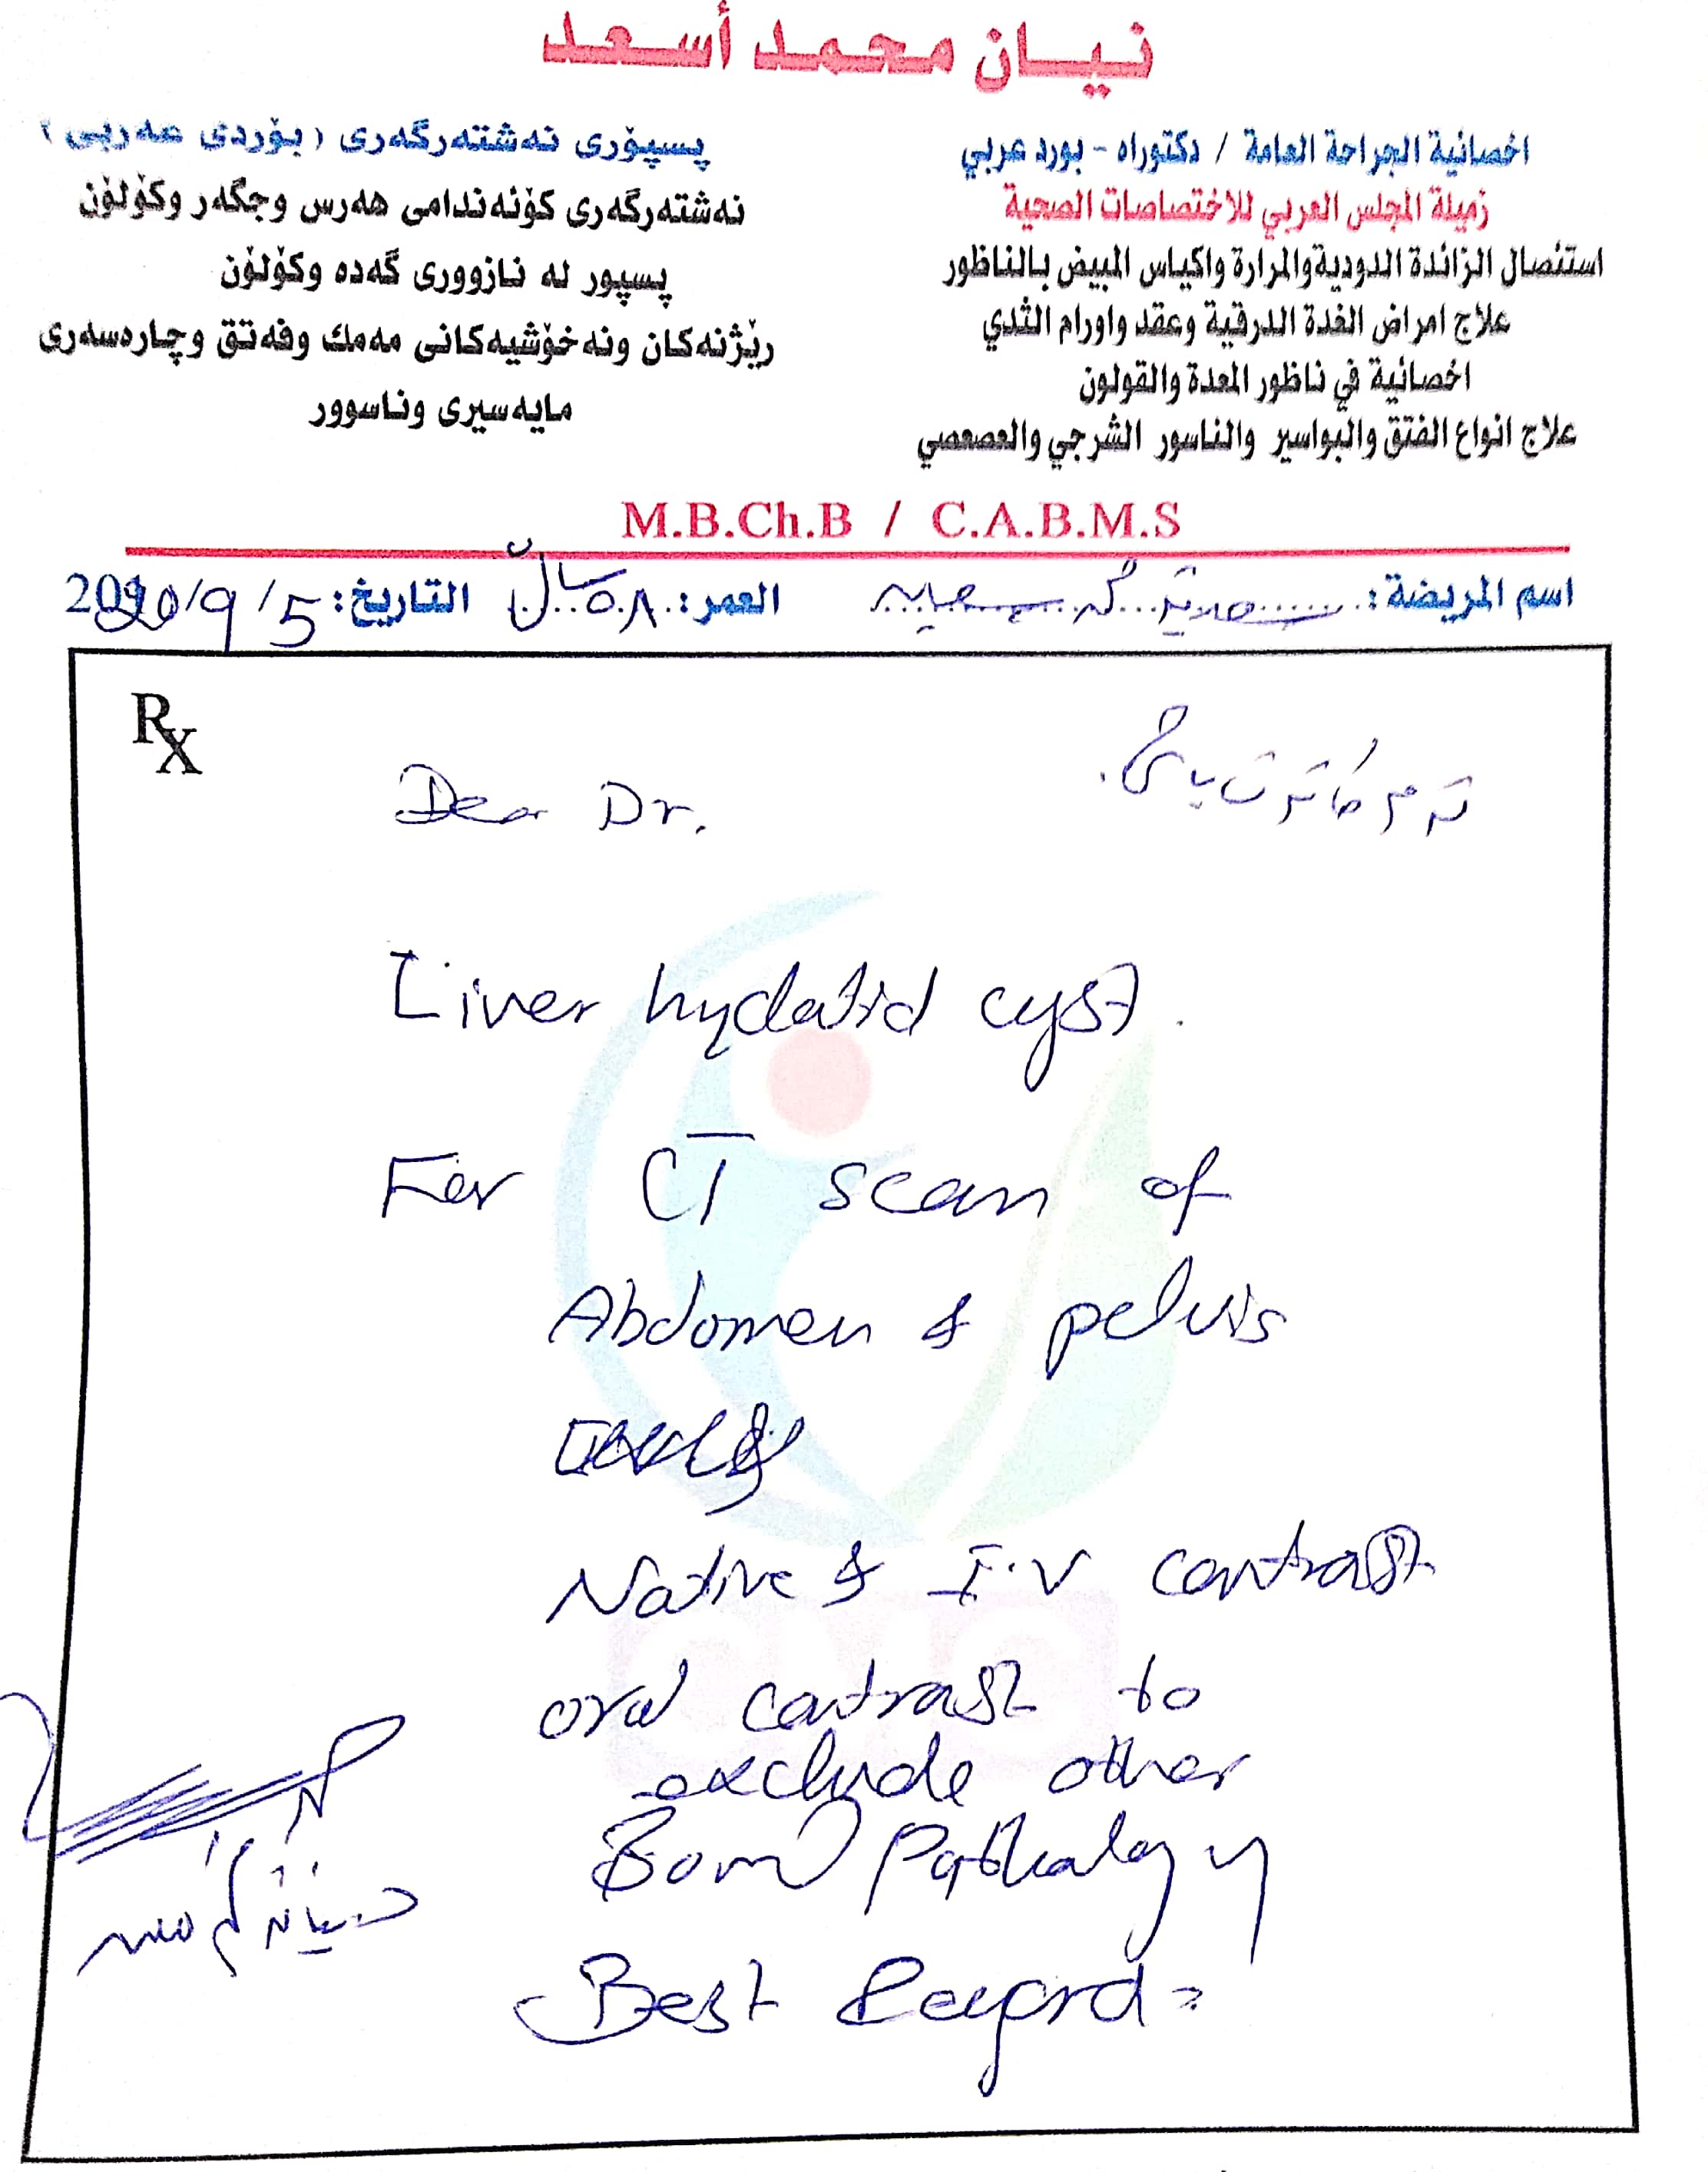 نيان محمد أسعد
اخصائية الجراحة العامة / دكتوراه - بورد عربي
زميلة المجلس العربي للاختصاصات الصحية
استئصال الزائدة الدودية والمرارة واكياس المبيض بالناظور
علاج امراض الغدة الدرقية وعقد واورام الثدي
اخصائية في ناظور المعدة والقولون
علاج انواع الفتق والبواسير والناسور الشرجي والعصعصي
پسپۆری نەشتەرگەری (بۆردی عەربی)
نەشتەرگەری كۆئەندامی هەرس وجگەر وكۆلۆن
پسپور لە نازووری گەدە وكۆلۆن
رێژنەكان ونەخۆشیەكانی مەمك وفەتق وچارەسەری
مایەسیری وناسوور
M.B.Ch.B / C.A.B.M.S
اسم المريضة: العمر: ٥٨ ساڵ التاريخ: 5/9/2020
Rx
Dear Dr.
Liver hydatid cyst.
For CT scan of
Abdomen & pelvis
Native & I.V contrast
oral contrast to
exclude other
Bowel Pathology
Best Regards